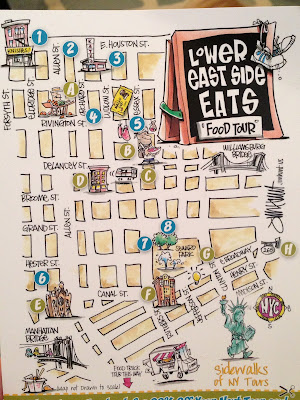 1
2
3
E. HOUSTON ST.
KNISHES
ALLEN ST.
FORSYTH ST.
ELDRIDGE ST.
ORCHARD ST.
LUDLOW ST.
ESSEX ST.
LOWER
EAST SIDE
EATS
"FOOD TOUR"
A
4
5
RIVINGTON ST.
B
WILLIAMSBURG
BRIDGE
DELANCEY ST.
D
C
BROOME ST.
ALLEN ST.
GRAND ST.
7
8
SEWARD
PARK
E. BROADWAY
G
H
HESTER ST.
CLINTON ST.
HENRY ST.
MADISON ST.
6
CANAL ST.
E
F
NYC
MANHATTAN
BRIDGE
FOOD TRUCK
TOUR THIS WAY
Sidewalks
of NY Tours
(map not drawn to scale!)